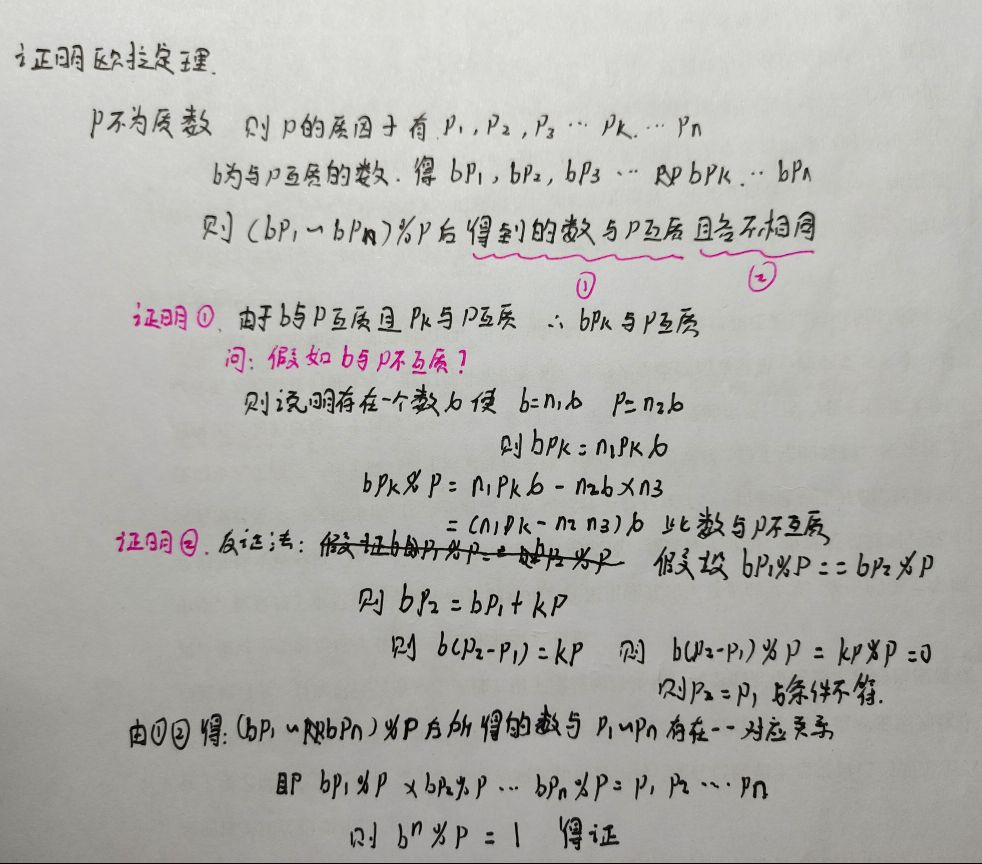 证明欧拉定理.
P不为质数 则P的质因子有 P1, P2, P3 … PK … Pn
b为与P互质的数. 得 bP1, bP2, bP3 … bPK … bPn
则 (bP1 ~ bPn)%P后 得到的数与P互质 且各不相同
① ②
证明①. 由于b与P互质且 PK与P互质 ∴ bPK与P互质
问: 假如b与P不互质?
则说明存在一个数b 使 b=n1b P=n2b
则 bPK = n1PKb
bPK%P = n1PKb - n2b×n3
= (n1PK - n2n3)b 此数与P不互质
证明②. 反证法: 假设 bP1%P == bP2%P
则 bP2 = bP1 + kP
则 b(P2-P1) = kP 则 b(P2-P1)%P = kP%P = 0
则P2=P1 与条件不符.
由①②得: (bP1 ~ bPn)%P后所得的数与 P1~Pn 存在一一对应关系
即 bP1%P × bP2%P … bPn%P = P1 P2 … Pn
则 bⁿ%P = 1 得证